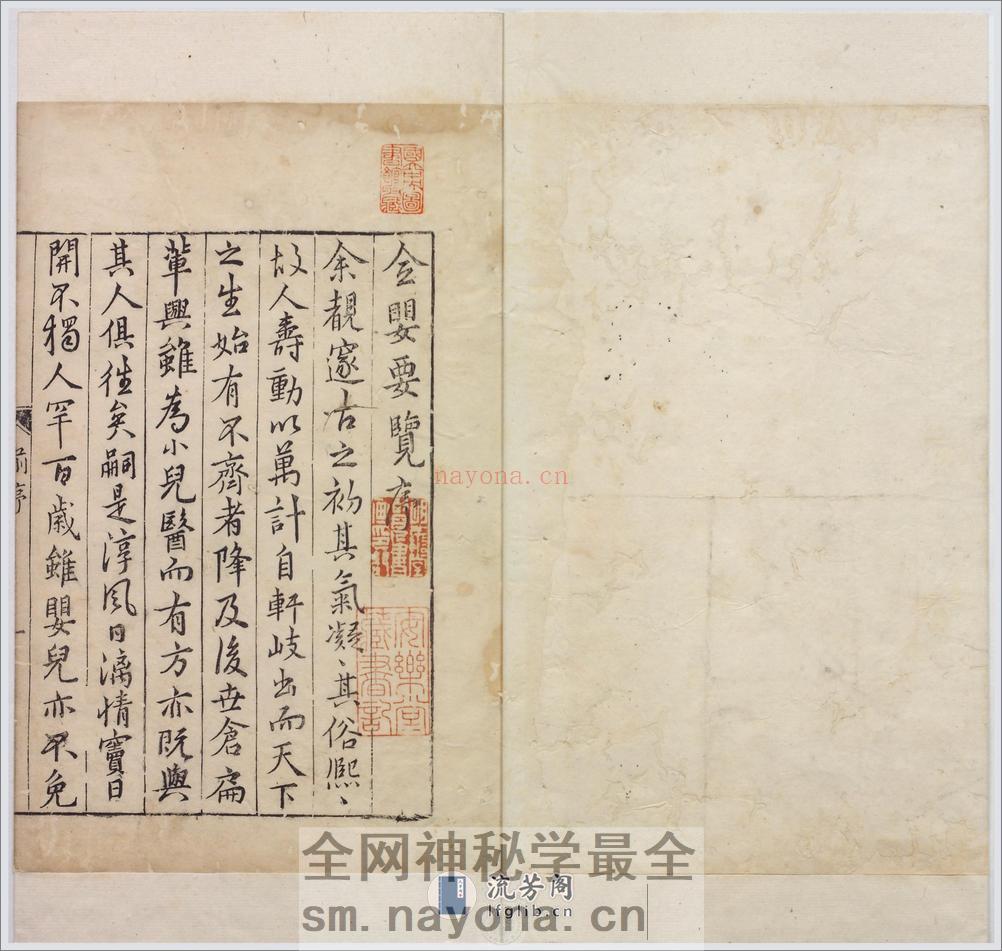 全嬰要覽序
余覩邃古之初其氣凝〻其俗熈〻
故人壽動以萬計自軒岐出而天下
之生始有不齊者降及後世倉扁
輩興雖為小兒醫而有方亦既與
其人俱徃矣嗣是淳風日漓情竇日
開不獨人罕百歲雖嬰兒亦不免
前序
一
安樂堂
藏書記
nayona.cn
全网神秘学最全
流芳阁
lfglib.cn
sm.nayona.cn